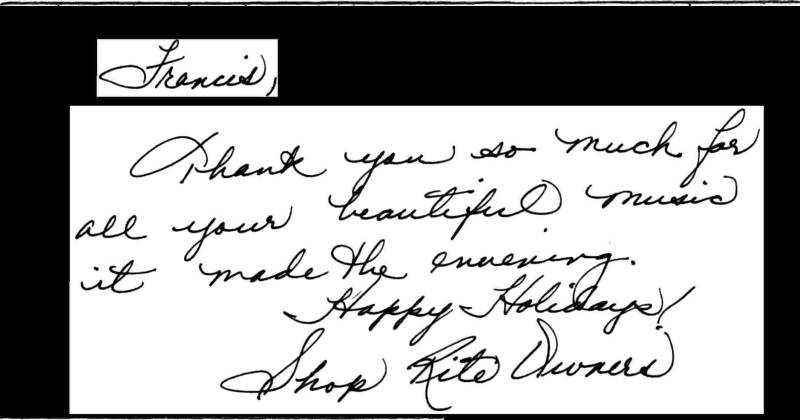 Francis,
Thank you so much for
all your beautiful music
it made the envening.
Happy Holidays!
Shop Rite Owners